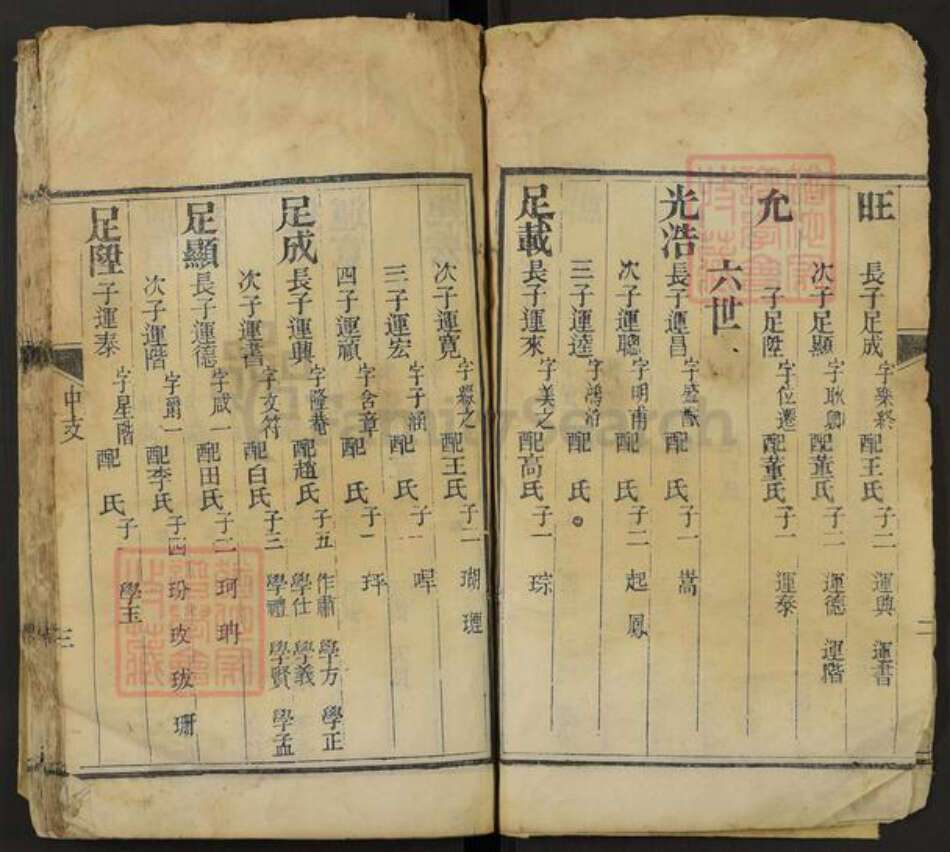 旺 長子足成 字樂終 配王氏 子二 運興 運書
次子足顯 字耿卿 配董氏 子二 運德 運階
允 子足陞 字位遷 配董氏 子一 運泰
六世
光浩 長子運昌 字盛猷 配 氏 子一 嵩
次子運聰 字明甫 配 氏 子二 起 鳳
三子運逵 字鴻前 配 氏
足載 長子運來 字美之 配高氏 子一 琮
次子運寛 字綏之 配王氏 子二 瑚 璉
三子運宏 字子涵 配 氏 子一
四子運頑 字含章 配 氏 子一 玶
足成 長子運興 字隆菴 配趙氏 子五 作肅 學方 學正 學仕 學義
次子運書 字文符 配白氏 子三 學禮 學賢 學孟
足顯 長子運德 字咸一 配田氏 子二 珂 珃
次子運階 字爾一 配李氏 子四 玢 玫 珬 珊
足陞 子運泰 字星階 配 氏 子 學玉
中支
三
二
FamilySearch